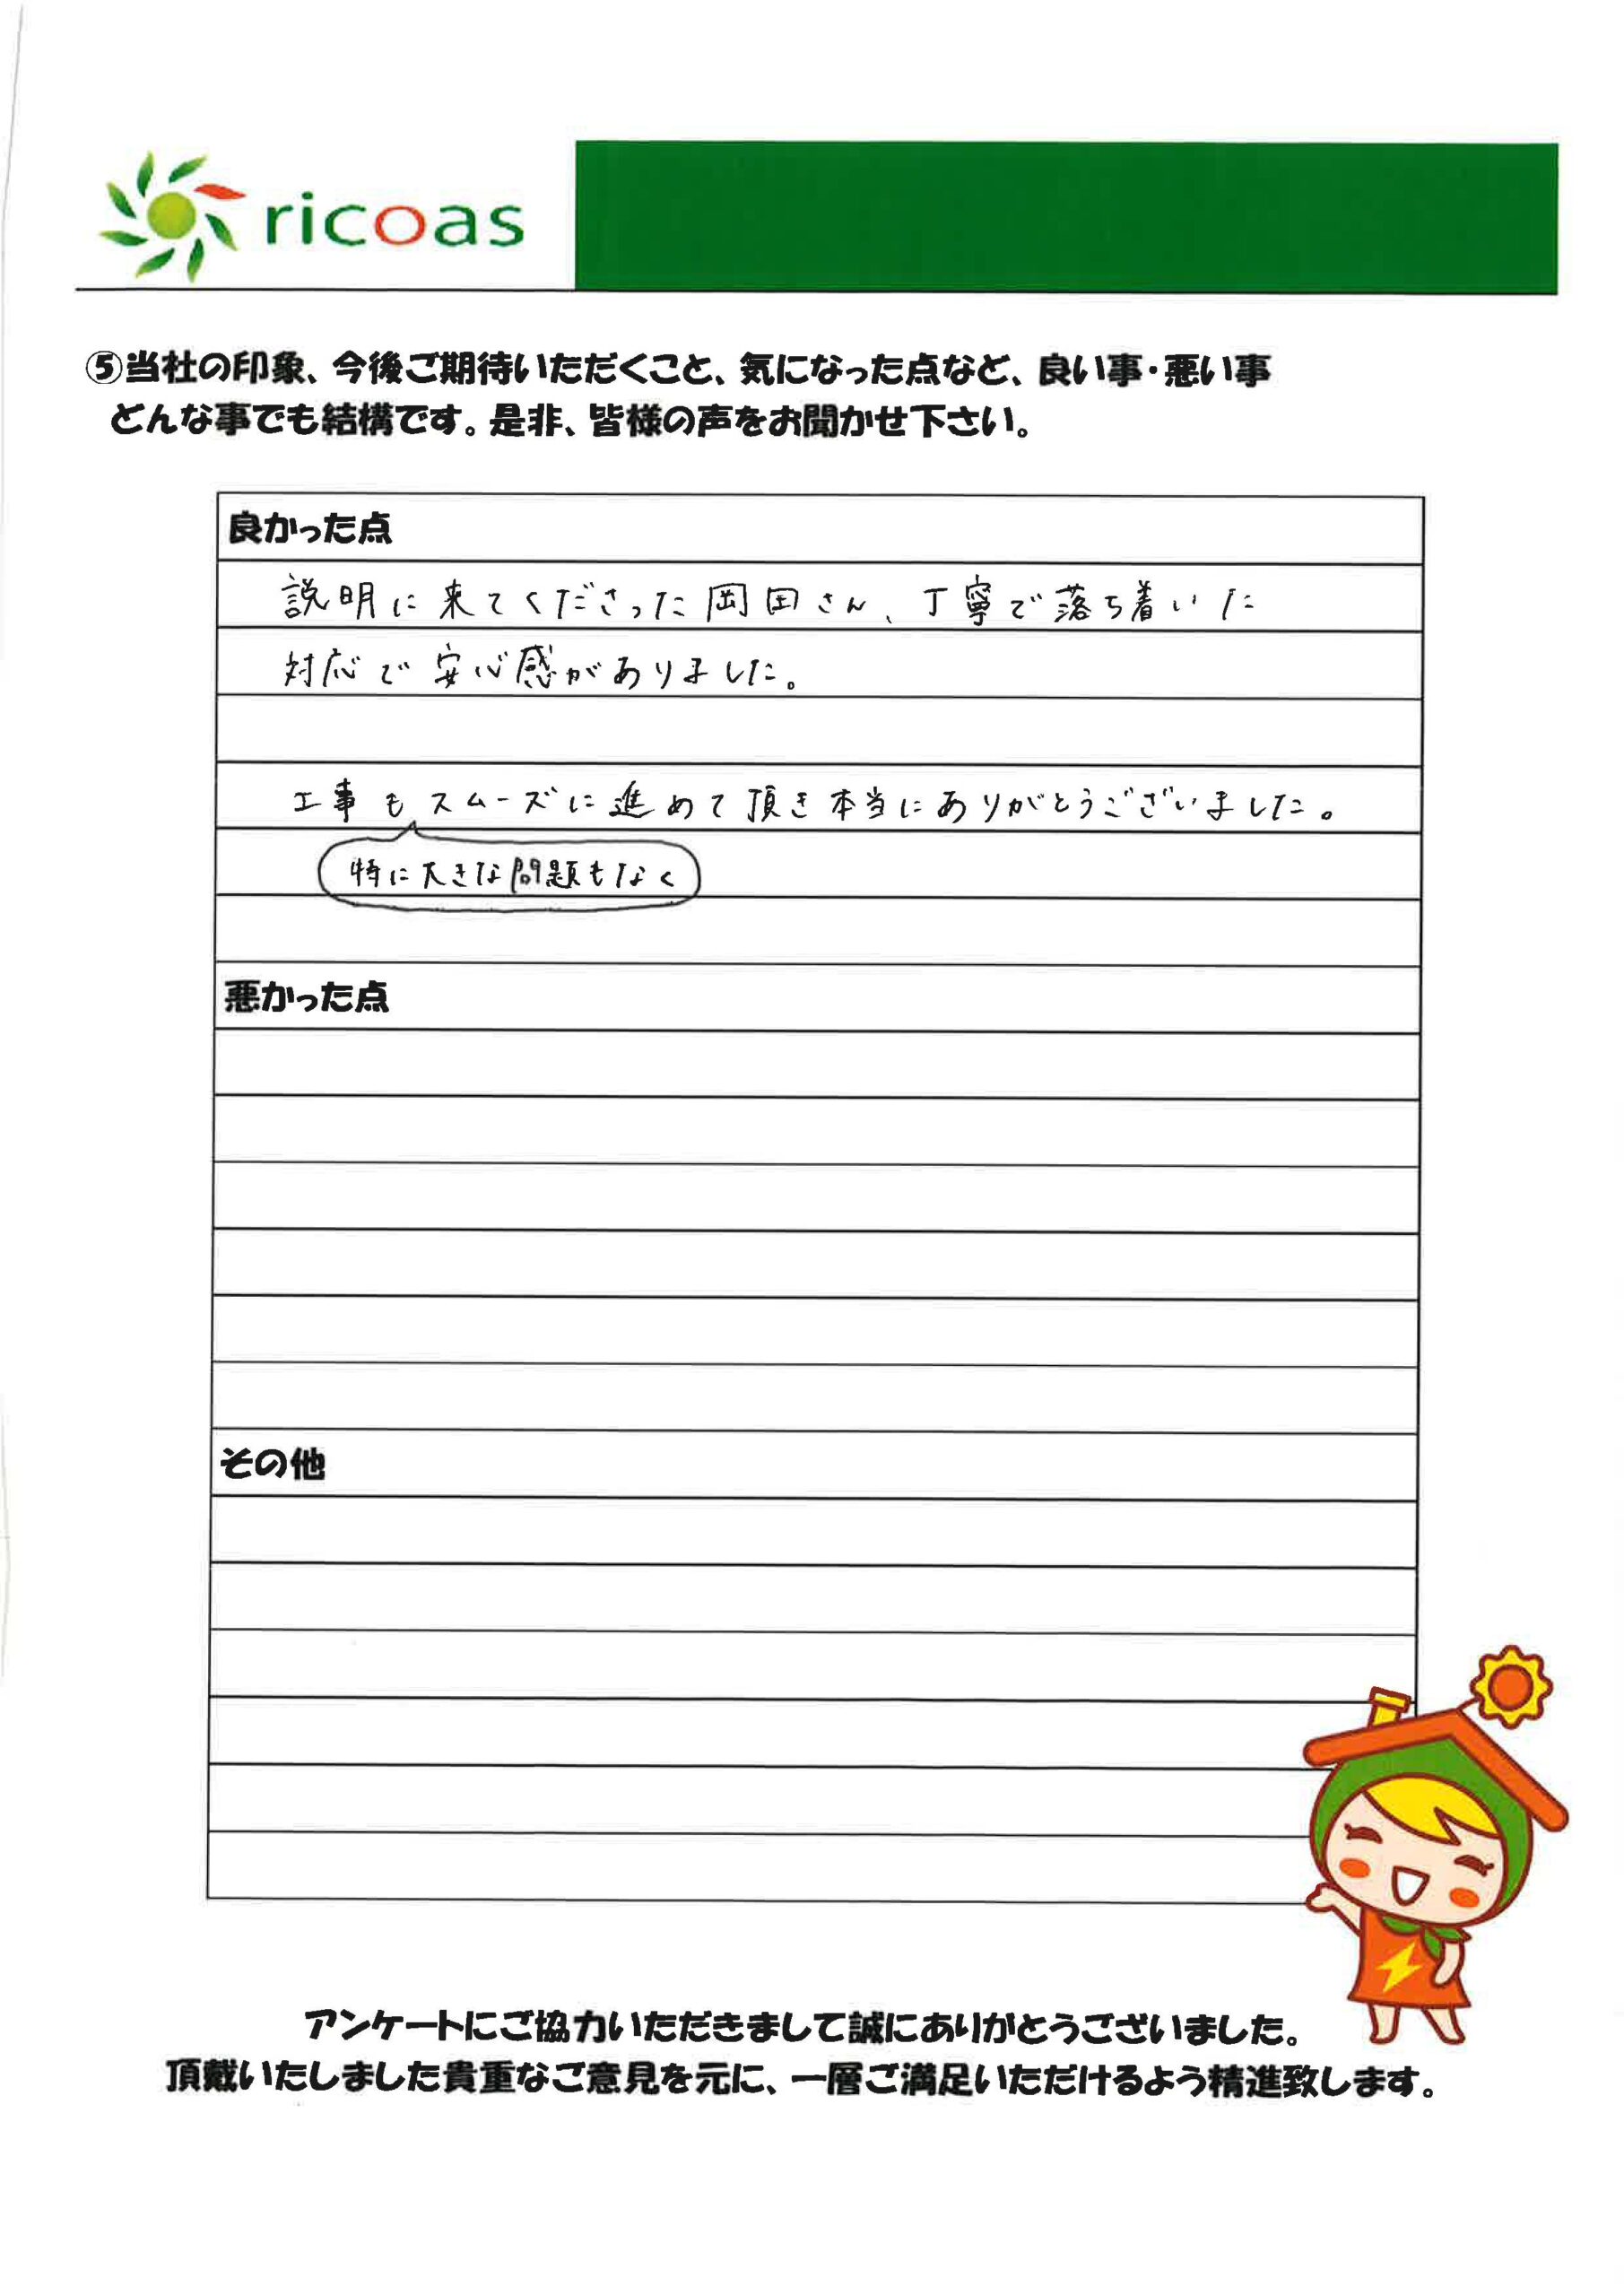 ricoas
⑤当社の印象、今後ご期待いただくこと、気になった点など、良い事・悪い事
どんな事でも結構です。是非、皆様の声をお聞かせ下さい。
良かった点
説明に来てくださった岡田さん、丁寧で落ち着いた
対応で安心感がありました。
工事もスムーズに進めて頂き本当にありがとうございました。
特に大きな問題もなく
悪かった点
その他
アンケートにご協力いただきまして誠にありがとうございました。
頂戴いたしました貴重なご意見を元に、一層ご満足いただけるよう精進致します。